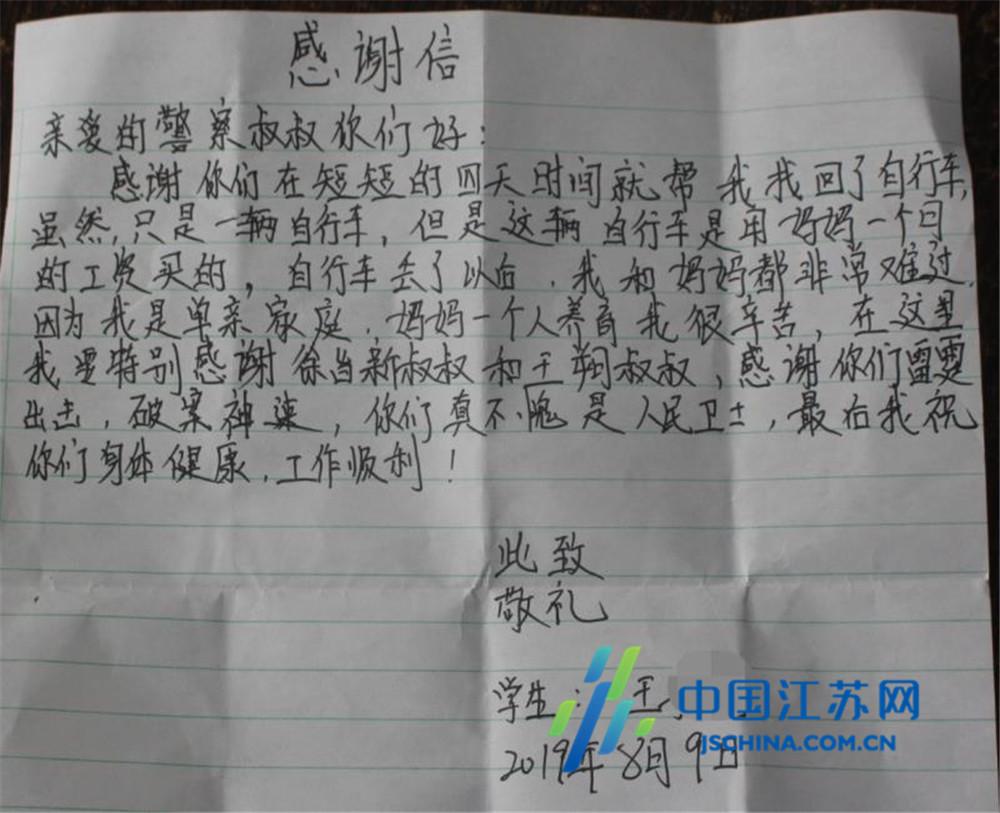 感谢信
亲爱的警察叔叔你们好：
感谢你们在短短的四天时间就帮我找回了自行车,
虽然,只是一辆自行车,但是这辆自行车是用妈妈一个月
的工资买的,自行车丢了以后,我和妈妈都非常难过,
因为我是单亲家庭,妈妈一个人养育我很辛苦,在这里
我要特别感谢徐当新叔叔和王朔叔叔,感谢你们雷霆
出击,破案神速,你们真不愧是人民卫士,最后我祝
你们身体健康,工作顺利!
此致
敬礼
学生：王
2019年8月9日
中国江苏网
JSCHINA.COM.CN